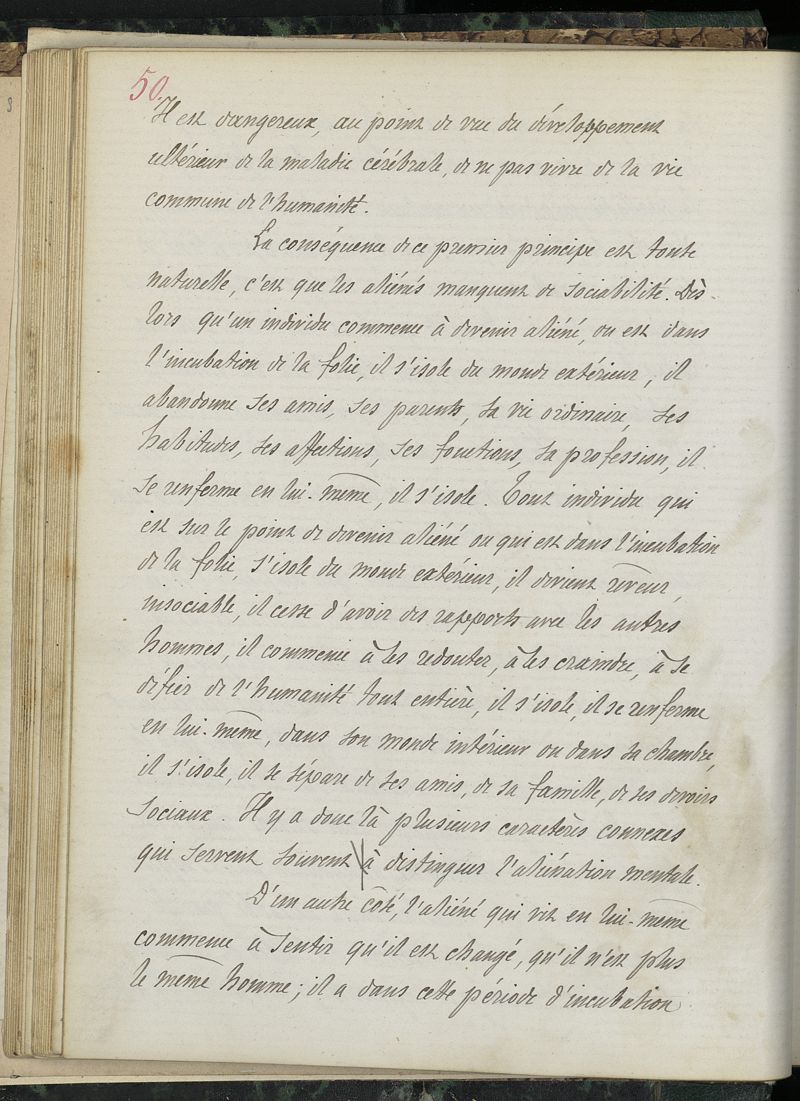 50.
Il est dangereux, au point de vue du développement
ultérieur de la maladie cérébrale, de ne pas vivre de la vie
commune de l'humanité.
La conséquence de ce premier principe est toute
naturelle, c'est que les aliénés manquent de sociabilité. Dès-
lors qu'un individu commence à devenir aliéné, ou est dans
l'incubation de la folie, il s'isole du monde extérieur, il
abandonne ses amis, ses parents, sa vie ordinaire, ses
habitudes, ses affections, ses fonctions, sa profession, il
se renferme en lui-même, il s'isole. Tout individu qui
est sur le point de devenir aliéné ou qui est dans l'incubation
de la folie, s'isole du monde extérieur, il devient rêveur,
insociable, il cesse d'avoir des rapports avec les autres
hommes, il commence à les redouter, à les craindre, à se
défier de l'humanité tout entière, il s'isole, il se renferme
en lui-même, dans son monde intérieur ou dans sa chambre,
il s'isole, il se sépare de ses amis, de sa famille, de ses devoirs
sociaux. Il y a donc là plusieurs caractères connexes
qui servent souvent à distinguer l'aliénation mentale.
D'un autre côté, l'aliéné qui vit en lui-même
commence à sentir qu'il est changé, qu'il n'est plus
le même homme; il a dans cette période d'incubation